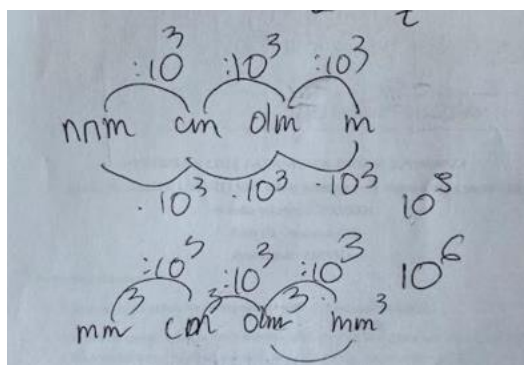 :10³ :10³ :10³
mm cm dm m
·10³ ·10³ ·10³
10³
:10³ :10³ :10³ 10⁶
mm³ cm³ dm³ mm³